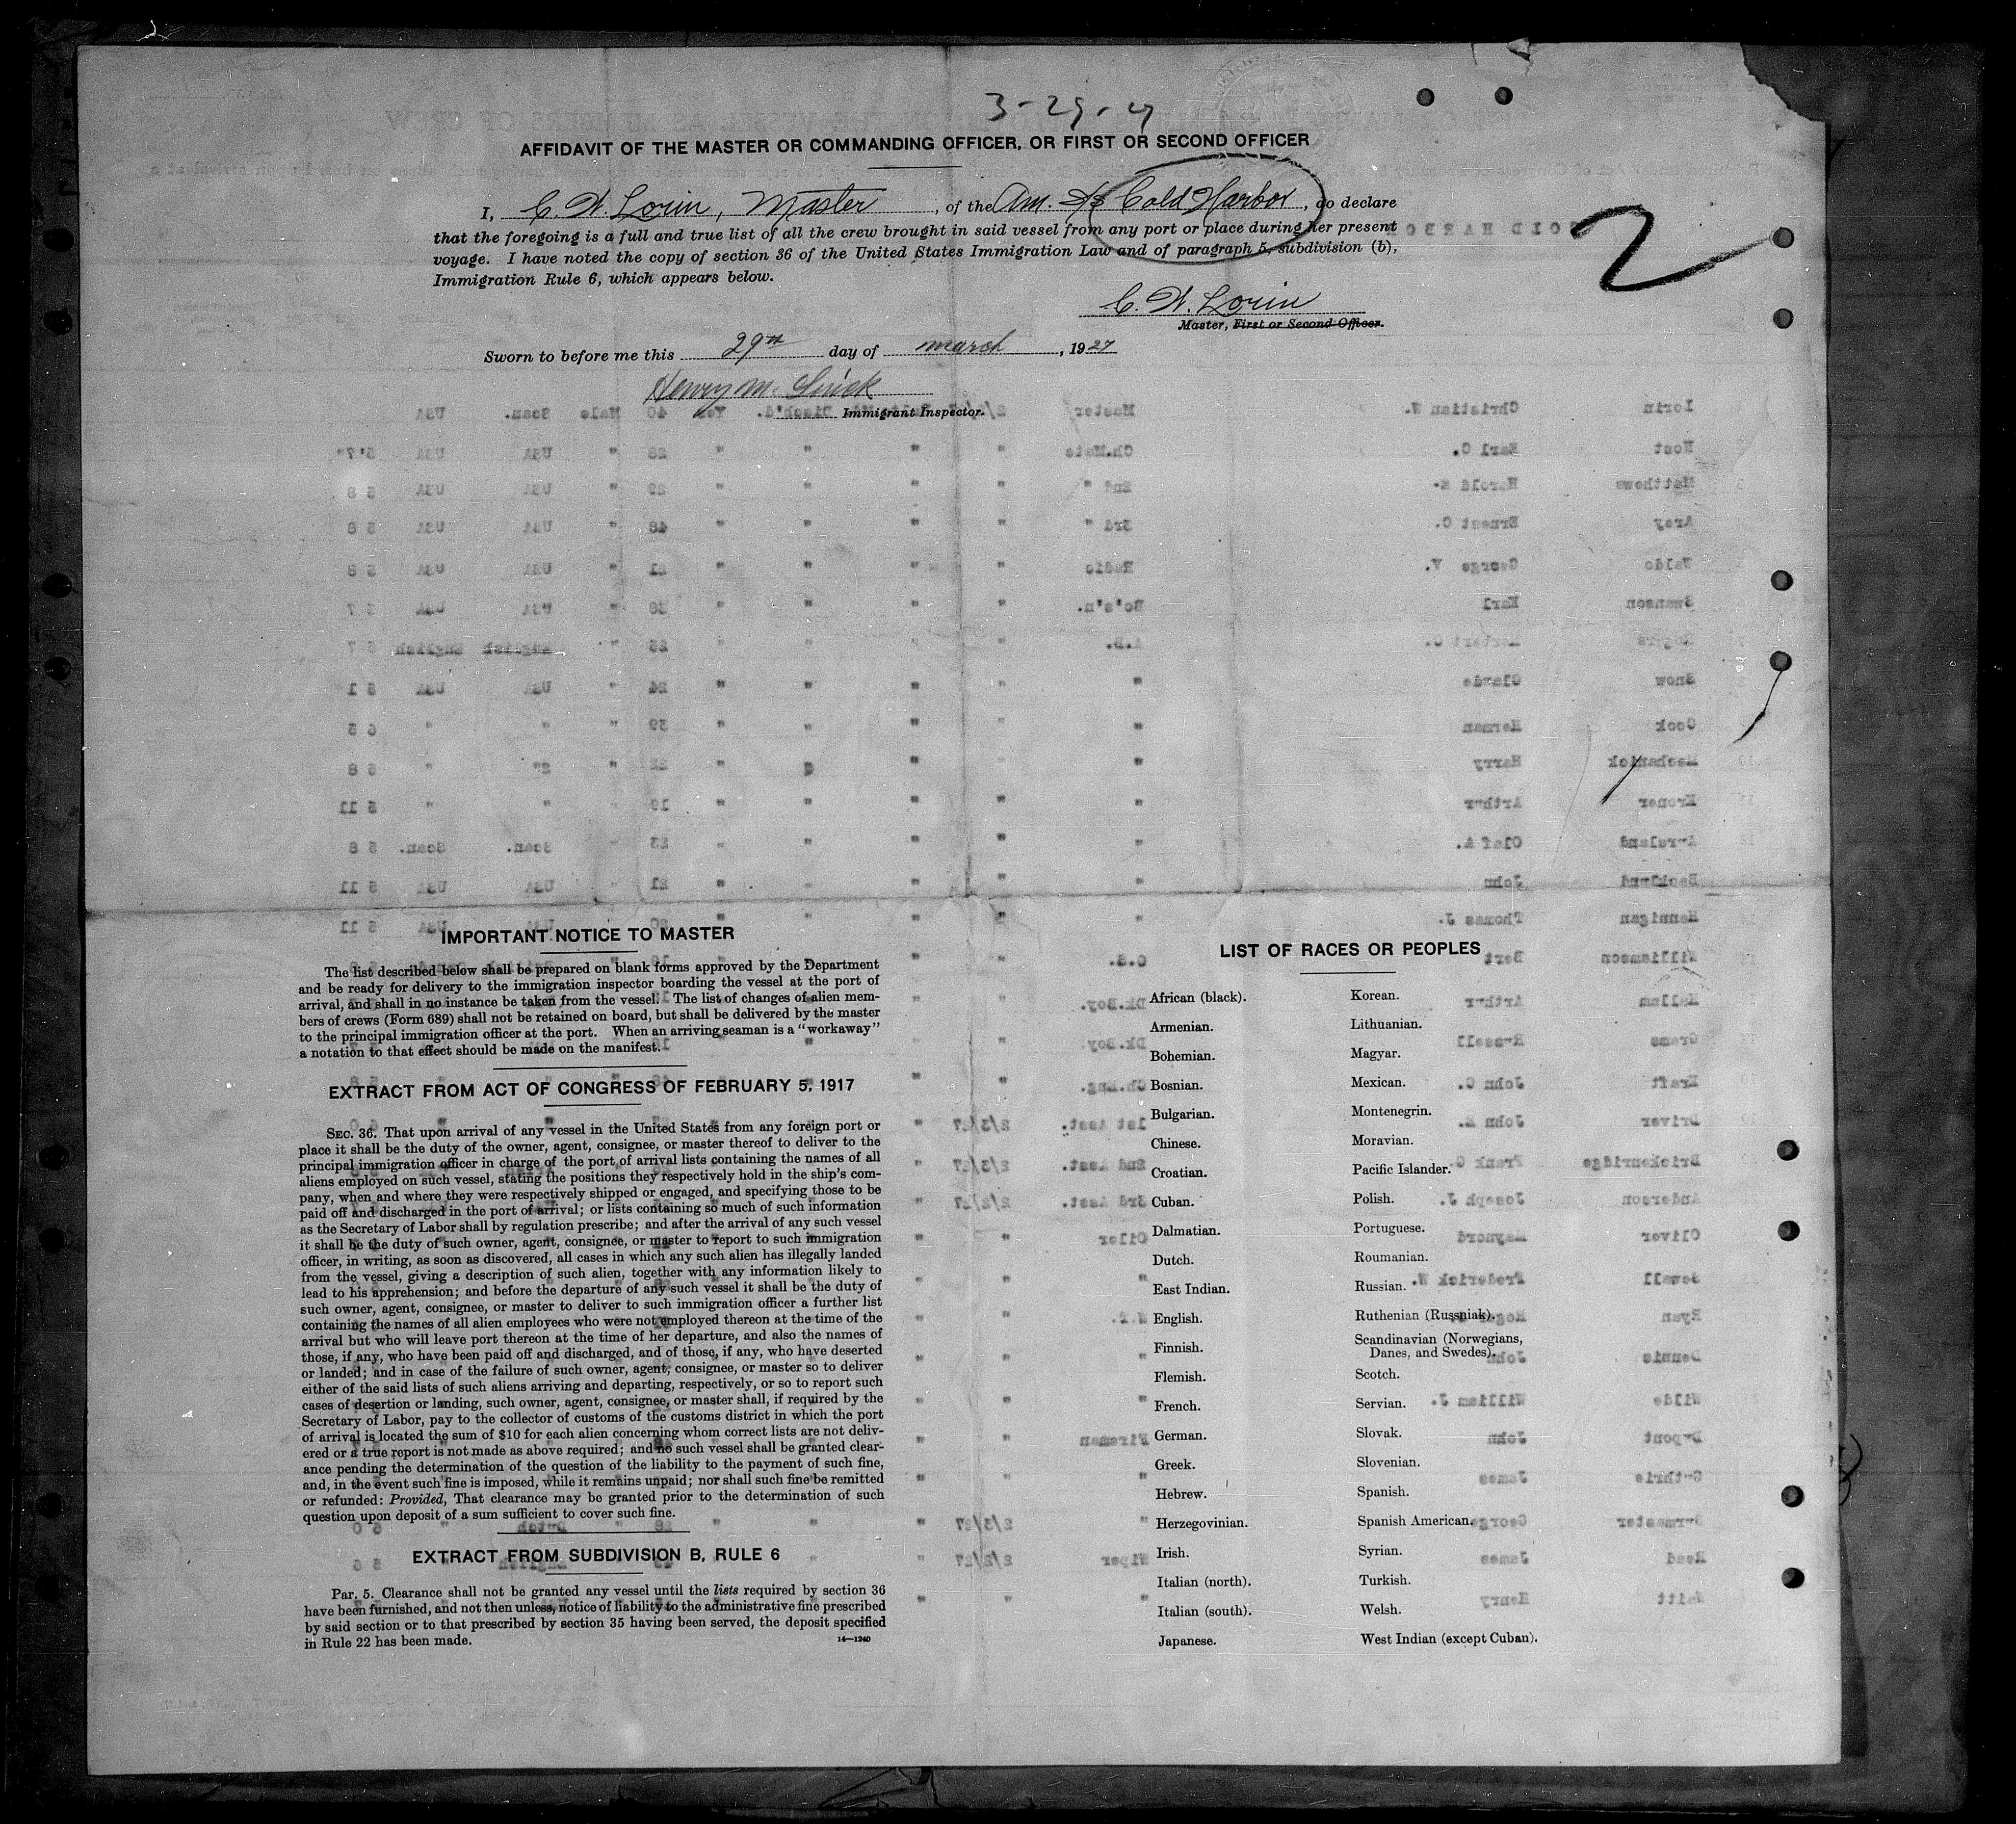 3-29-27
AFFIDAVIT OF THE MASTER OR COMMANDING OFFICER, OR FIRST OR SECOND OFFICER
I, C. W. Lorin, Master, of the Am. SS Cold Harbor, do declare
that the foregoing is a full and true list of all the crew brought in said vessel from any port or place during her present
voyage. I have noted the copy of section 36 of the United States Immigration Law and of paragraph 5, subdivision (b),
Immigration Rule 6, which appears below.
2
C. W. Lorin
Master, First or Second Officer.
Sworn to before me this 29th day of march, 1927
Henry M.
Immigrant Inspector.
IMPORTANT NOTICE TO MASTER
The list described below shall be prepared on blank forms approved by the Department
and be ready for delivery to the immigration inspector boarding the vessel at the port of
arrival, and shall in no instance be taken from the vessel. The list of changes of alien mem-
bers of crews (Form 689) shall not be retained on board, but shall be delivered by the master
to the principal immigration officer at the port. When an arriving seaman is a "workaway"
a notation to that effect should be made on the manifest.
EXTRACT FROM ACT OF CONGRESS OF FEBRUARY 5, 1917
SEC. 36. That upon arrival of any vessel in the United States from any foreign port or
place it shall be the duty of the owner, agent, consignee, or master thereof to deliver to the
principal immigration officer in charge of the port of arrival lists containing the names of all
aliens employed on such vessel, stating the positions they respectively hold in the ship's com-
pany, when and where they were respectively shipped or engaged, and specifying those to be
paid off and discharged in the port of arrival; or lists containing so much of such information
as the Secretary of Labor shall by regulation prescribe; and after the arrival of any such vessel
it shall be the duty of such owner, agent, consignee, or master to report to such immigration
officer, in writing, as soon as discovered, all cases in which any such alien has illegally landed
from the vessel, giving a description of such alien, together with any information likely to
lead to his apprehension; and before the departure of any such vessel it shall be the duty of
such owner, agent, consignee, or master to deliver to such immigration officer a further list
containing the names of all alien employees who were not employed thereon at the time of the
arrival but who will leave port thereon at the time of her departure, and also the names of
those, if any, who have been paid off and discharged, and of those, if any, who have deserted
or landed; and in case of the failure of such owner, agent, consignee, or master so to deliver
either of the said lists of such aliens arriving and departing, respectively, or so to report such
cases of desertion or landing, such owner, agent, consignee, or master shall, if required by the
Secretary of Labor, pay to the collector of customs of the customs district in which the port
of arrival is located the sum of $10 for each alien concerning whom correct lists are not deliv-
ered or a true report is not made as above required; and no such vessel shall be granted clear-
ance pending the determination of the question of the liability to the payment of such fine,
and, in the event such fine is imposed, while it remains unpaid; nor shall such fine be remitted
or refunded: Provided, That clearance may be granted prior to the determination of such
question upon deposit of a sum sufficient to cover such fine.
EXTRACT FROM SUBDIVISION B, RULE 6
Par. 5. Clearance shall not be granted any vessel until the lists required by section 36
have been furnished, and not then unless, notice of liability to the administrative fine prescribed
by said section or to that prescribed by section 35 having been served, the deposit specified
in Rule 22 has been made.
14—1240
LIST OF RACES OR PEOPLES
African (black).
Armenian.
Bohemian.
Bosnian.
Bulgarian.
Chinese.
Croatian.
Cuban.
Dalmatian.
Dutch.
East Indian.
English.
Finnish.
Flemish.
French.
German.
Greek.
Hebrew.
Herzegovinian.
Irish.
Italian (north).
Italian (south).
Japanese.
Korean.
Lithuanian.
Magyar.
Mexican.
Montenegrin.
Moravian.
Pacific Islander.
Polish.
Portuguese.
Roumanian.
Russian.
Ruthenian (Russniak).
Scandinavian (Norwegians,
Danes, and Swedes).
Scotch.
Servian.
Slovak.
Slovenian.
Spanish.
Spanish American.
Syrian.
Turkish.
Welsh.
West Indian (except Cuban).